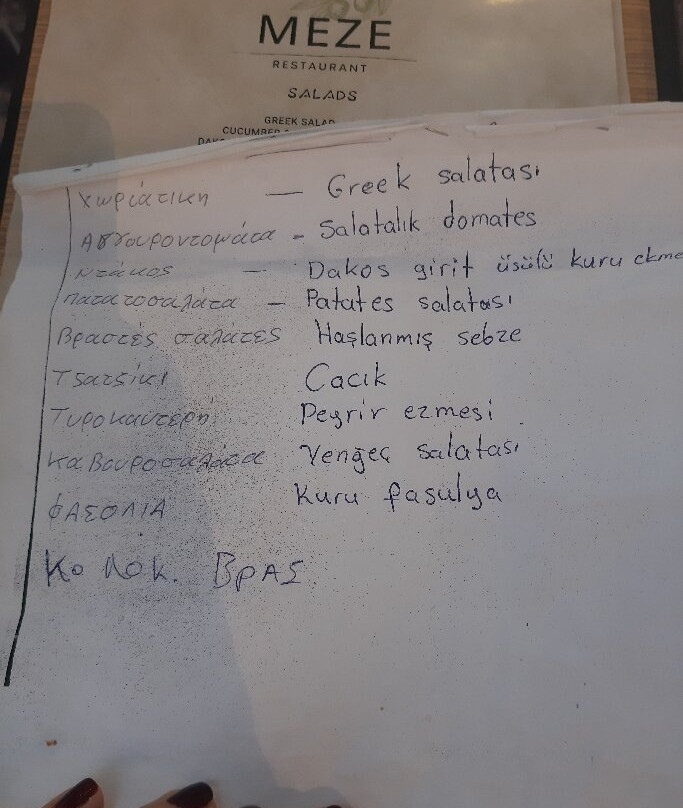 MEZE
RESTAURANT
SALADS
GREEK SALAD
CUCUMBER
χωριάτικη — Greek salatası
Αγγουροντομάτα - Salatalık domates
Ντάκος — Dakos girit üsülü kuru ekme
πατατοσαλάτα — Patates salatası
Βραστές σαλάτες Haşlanmış sebze
Τσατσίκι Cacık
Τυροκαυτερή Peynir ezmesi
Καβουροσαλάτα Yengeç salatası
ΦΑΣΟΛΙΑ Kuru fasulya
Κολοκ. ΒΡΑΣ